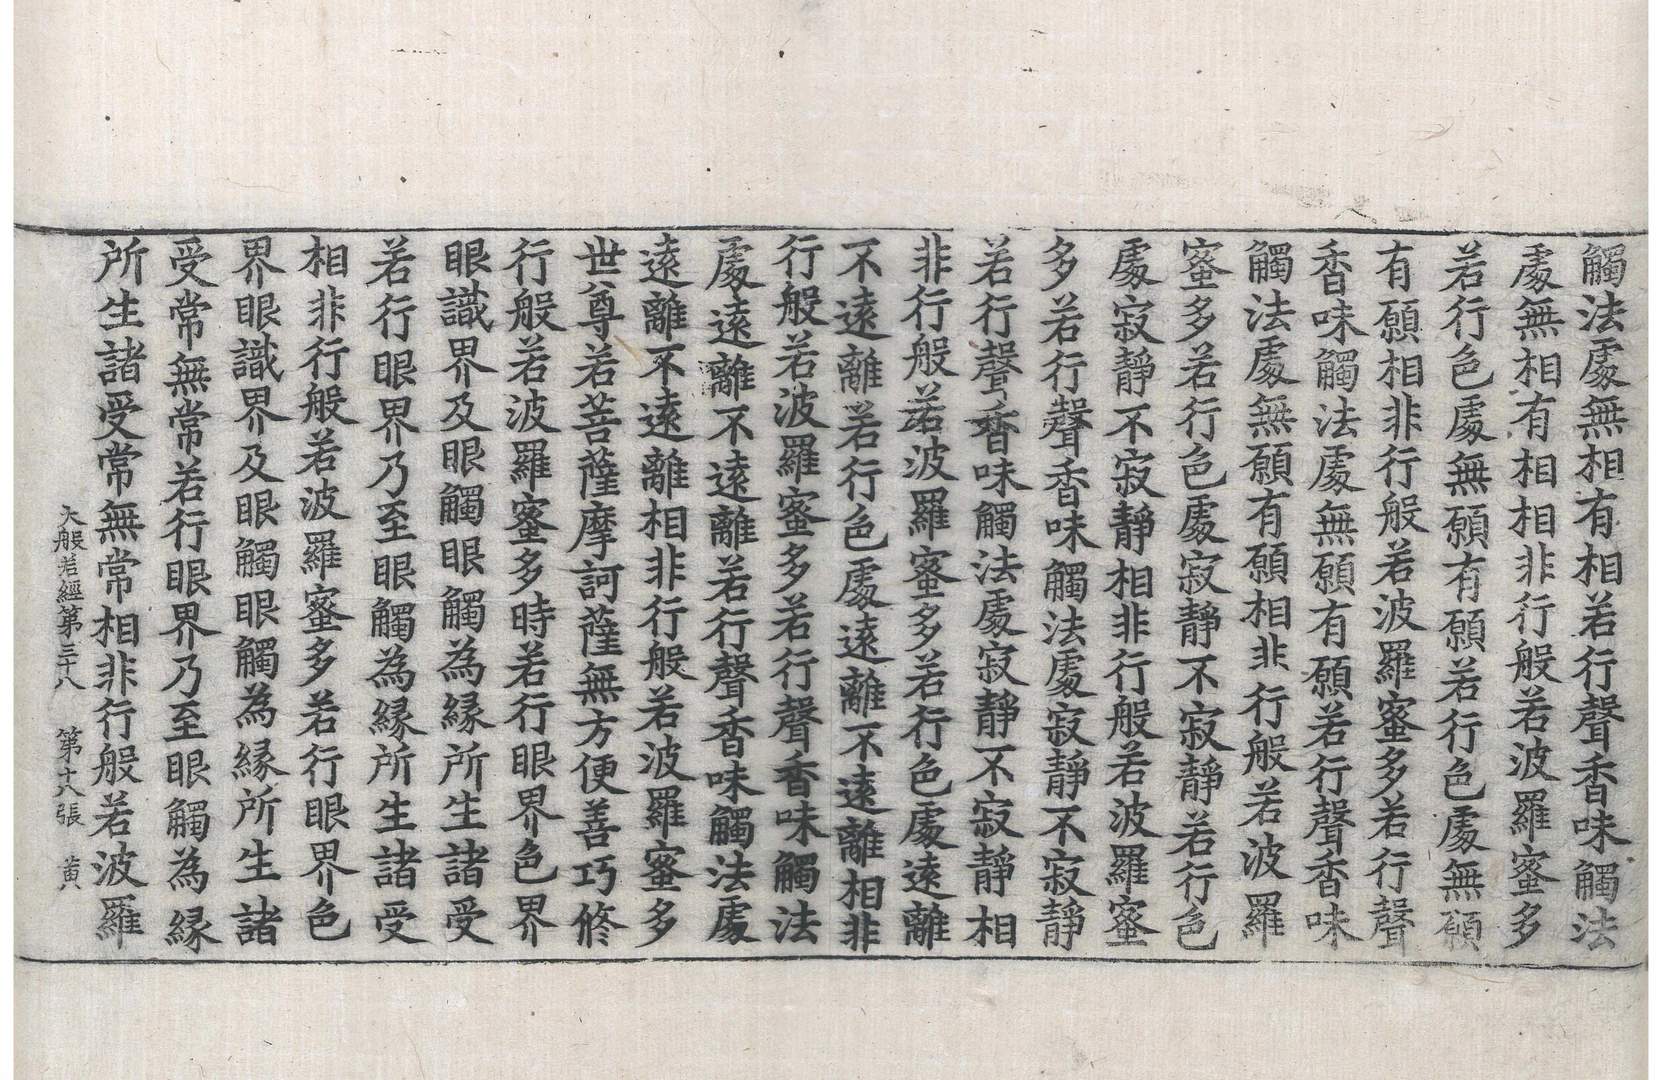 觸法處無相有相若行聲香味觸法
處無相有相相非行般若波羅蜜多
若行色處無願有願若行色處無願
有願相非行般若波羅蜜多若行聲
香味觸法處無願有願若行聲香味
觸法處無願有願相非行般若波羅
蜜多若行色處寂靜不寂靜若行色
處寂靜不寂靜相非行般若波羅蜜
多若行聲香味觸法處寂靜不寂靜
若行聲香味觸法處寂靜不寂靜相
非行般若波羅蜜多若行色處遠離
不遠離若行色處遠離不遠離相非
行般若波羅蜜多若行聲香味觸法
處遠離不遠離若行聲香味觸法處
遠離不遠離相非行般若波羅蜜多
世尊若菩薩摩訶薩無方便善巧修
行般若波羅蜜多時若行眼界色界
眼識界及眼觸眼觸為緣所生諸受
若行眼界乃至眼觸為緣所生諸受
相非行般若波羅蜜多若行眼界色
界眼識界及眼觸眼觸為緣所生諸
受常無常若行眼界乃至眼觸為緣
所生諸受常無常相非行般若波羅
大般若經第三十八 第十八張 黃